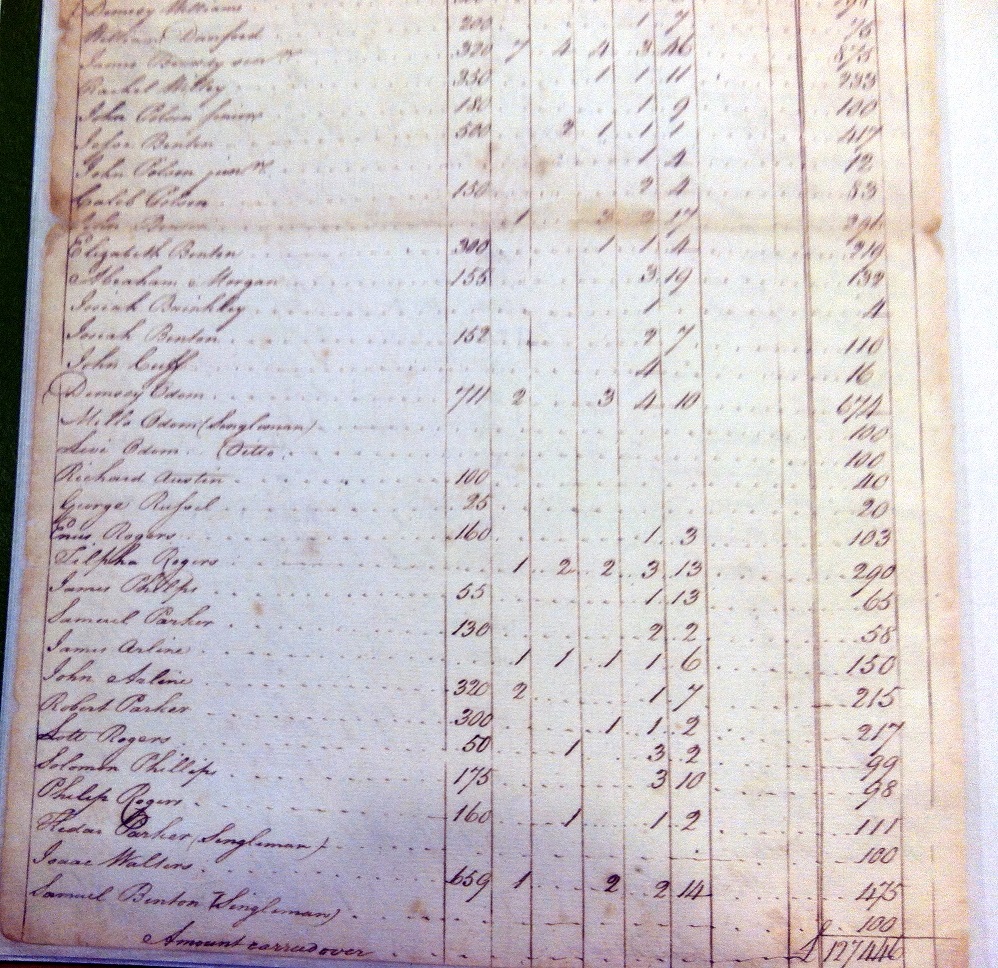 Demsey Williams 198
William Danford 200 1 7 75
James Benton sen.r 320 7 4 4 3 46 875
Rachel Willey 350 1 1 11 233
John Odom senior 180 1 9 100
Jesse Benton 500 2 1 1 1 417
John Odom jun.r 1 4 12
Caleb Odom 130 2 4 83
1 3 2 17 291
Elizabeth Benton 300 1 1 4 219
Abraham Morgan 155 3 19 132
Josiah Brinkley 1 4
Josiah Benton 152 2 7 110
John Cuff 4 16
Demsey Odom 711 2 3 4 10 674
Mills Odom (Singleman) 100
Levi Odom (Ditto 100
Richard Austin 100 40
George Russel 25 20
Enus Rogers 160 1 3 103
Tilpha Rogers 1 2 2 3 13 290
James Phillips 55 1 13 65
Samuel Parker 130 2 2 58
James Arline 1 1 1 1 6 150
John Arline 320 2 1 7 215
Robert Parker 300 1 1 2 217
Lott Rogers 50 1 3 2 99
Solomon Phillips 175 3 10 98
Philip Rogers 160 1 1 2 111
Kedar Parker (Singleman) 100
Isaac Walters 659 1 2 2 14 475
Samuel Benton (Singleman) 100
Amount carred over £ 127446